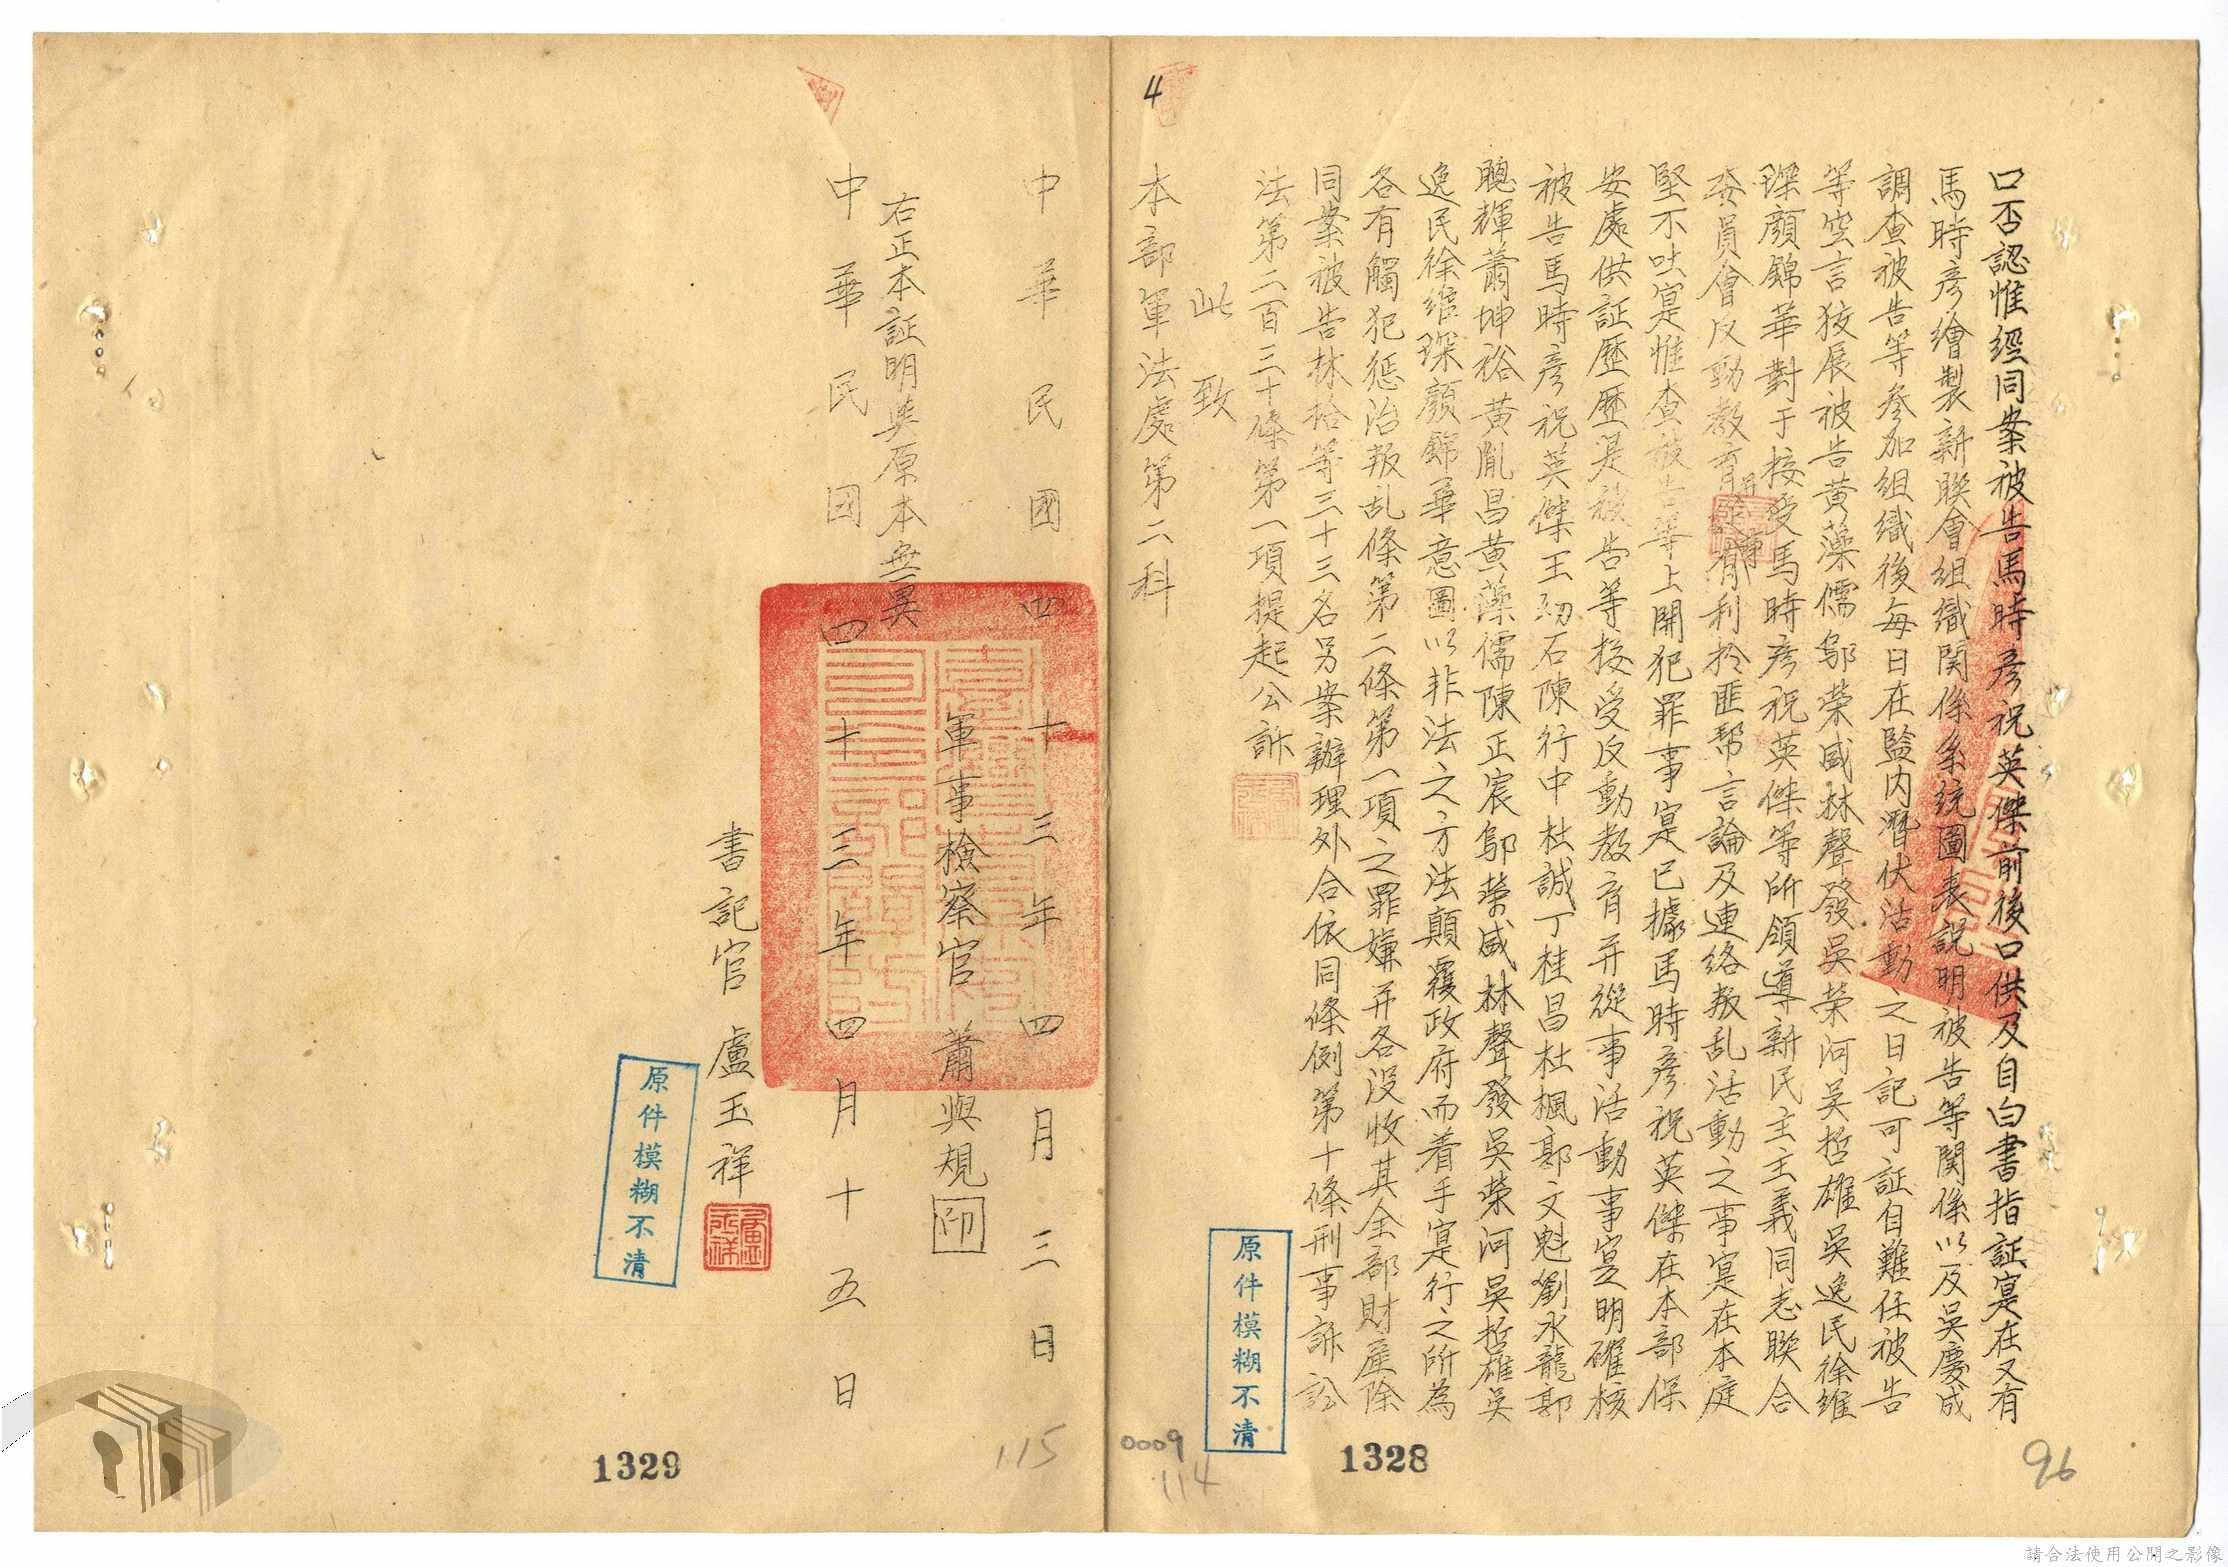 4
口否認惟經同案被告馬時彥祝英傑前後口供及自白書指証寔在又有
馬時彥繪製新聯會組織関係系統圖表說明被告等関係以及吳慶成
調查被告等參加組織後每日在監內潛伏活動之日記可証自難任被告
等空言狡展被告黃藻儒鄔荣威林聲發吳荣河吳哲雄吳逸民徐維
琛顏錦華對于接受馬時彥祝英傑等所領導新民主主義同志聯合
委員會反動教育有利於匪帮言論及連絡叛乱活動之事寔在本庭
堅不吐寔惟查被告等上開犯罪事寔已據馬時彥祝英傑在本部保
安處供証歷歷是被告等接受反動教育并從事活動事寔明確核
被告馬時彥祝英傑王初石陳行中杜誠丁桂昌杜楓郭文魁劉水龍郭
聰輝蕭坤裕黃胤昌黃藻儒陳正宸鄔荣威林聲發吳荣河吳哲雄吳
逸民徐維琛顏錦華意圖以非法之方法顛覆政府而着手寔行之所為
各有觸犯惩治叛乱條第二條第一項之罪嫌并各沒收其全部財産除
同案被告林拾等三十三名另案辦理外合依同條例第十條刑事訴訟
法第二百三十條第一項提起公訴
此致
本部軍法處第二科
中華民國四十三年四月三日
軍事檢察官 蕭與規 印
右正本証明與原本無異
中華民国四十三年四月十五日
書記官 盧玉祥
盧玉祥
原件模糊不清
原件模糊不清
1329
115
0009
114
1328
96
請合法使用公開之影像